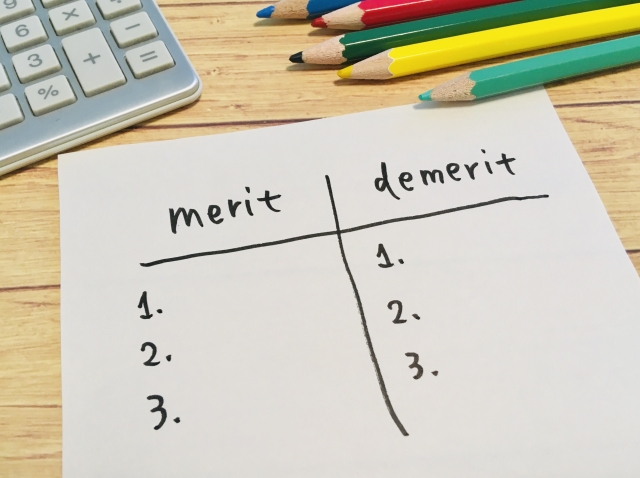 9
6 × −
3 + =
%
merit demerit
1. 1.
2. 2.
3. 3.